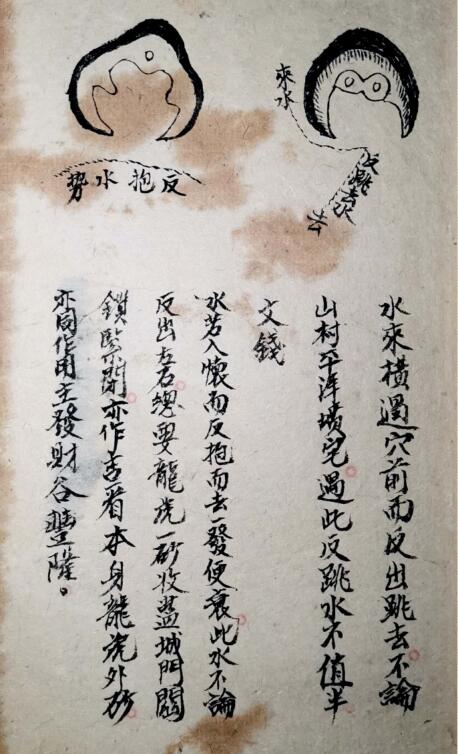 來水
反跳水
去
反抱水勢
水來橫過穴前而反出跳去不論
山村平洋墳宅遇此反跳水不值半
文錢
水若入懷而反抱而去一發便衰此水不論
反出左右總要龍虎一砂收盡城門關
鎖緊閉亦作吉看本身龍虎外砂
亦同作用主發財谷豐隆